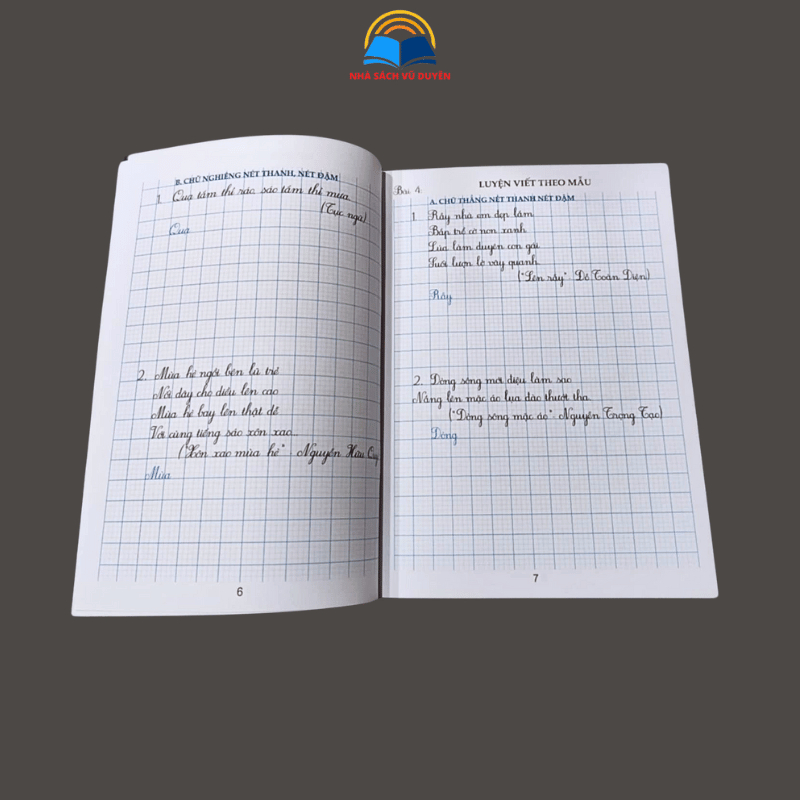 NHÀ SÁCH VŨ DUYÊN
B. CHỮ NGHIÊNG NÉT THANH, NÉT ĐẬM
1. Quạ tắm thì ráo, sáo tắm thì mưa.
(Tục ngữ)
Quạ
2. Mùa hè ngồi bên lũ trẻ
Nối dây cho diều lên cao
Mùa hè bay lên thật dễ
Với cùng tiếng sáo xôn xao...
("Xôn xao mùa hè" - Nguyễn Hữu Quý
Mùa
6
Bài 4
LUYỆN VIẾT THEO MẪU
A. CHỮ THẲNG NÉT THANH NÉT ĐẬM
1 Rẫy nhà em đẹp lắm
Bắp trổ cờ non xanh
Lúa làm duyên con gái
Suối lượn lờ vây quanh.
("Lên rẫy" Đỗ Toàn Diện)
Rẫy
2. Dòng sông mới điệu làm sao
Nắng lên mặc áo lụa đào thướt tha.
("Dòng sông mặc áo" - Nguyễn Trọng Tạo)
Dòng
7